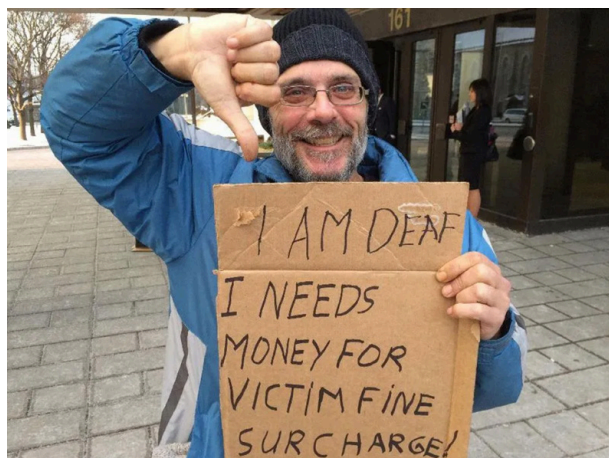 161
I AM DEAF
I NEEDS
MONEY FOR
VICTIM FINE
SURCHARGE!